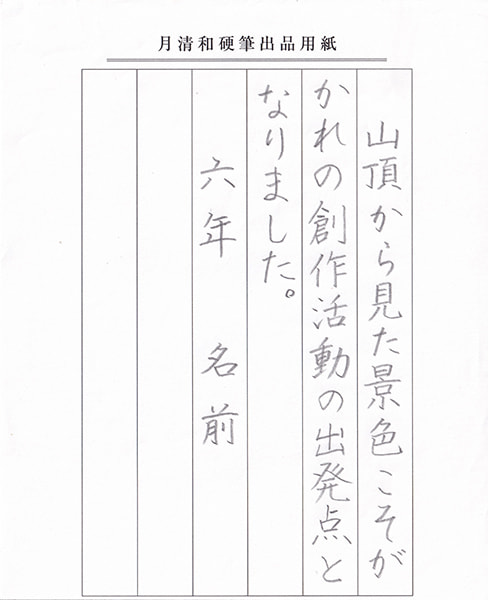 月清和硬筆出品用紙
山頂から見た景色こそが
かれの創作活動の出発点と
なりました。
六年 名前